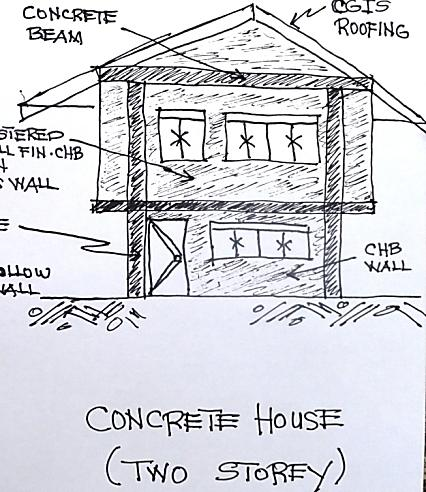 CONCRETE
BEAM
CGIS
ROOFING
STERED
LL FIN·CHB
WALL
CHB
WALL
LLOW
WALL
CONCRETE HOUSE
(TWO STOREY)